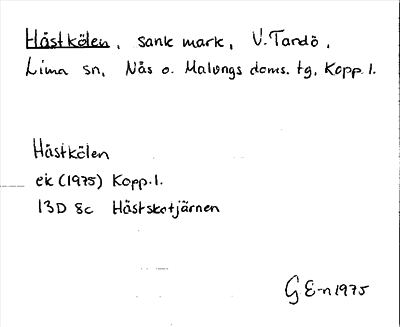 Håstkölen, sank mark, V. Tandö,
Lima sn, Nås o. Malungs doms. tg, Kopp. l.
Håstkölen
ek (1975) Kopp. l.
13D 8c Håstskotjärnen
G E-n 1975